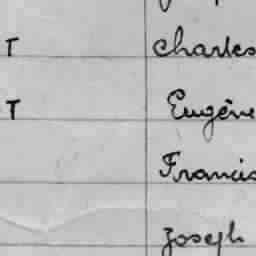 T Charles
T Eugène
Francis
Joseph